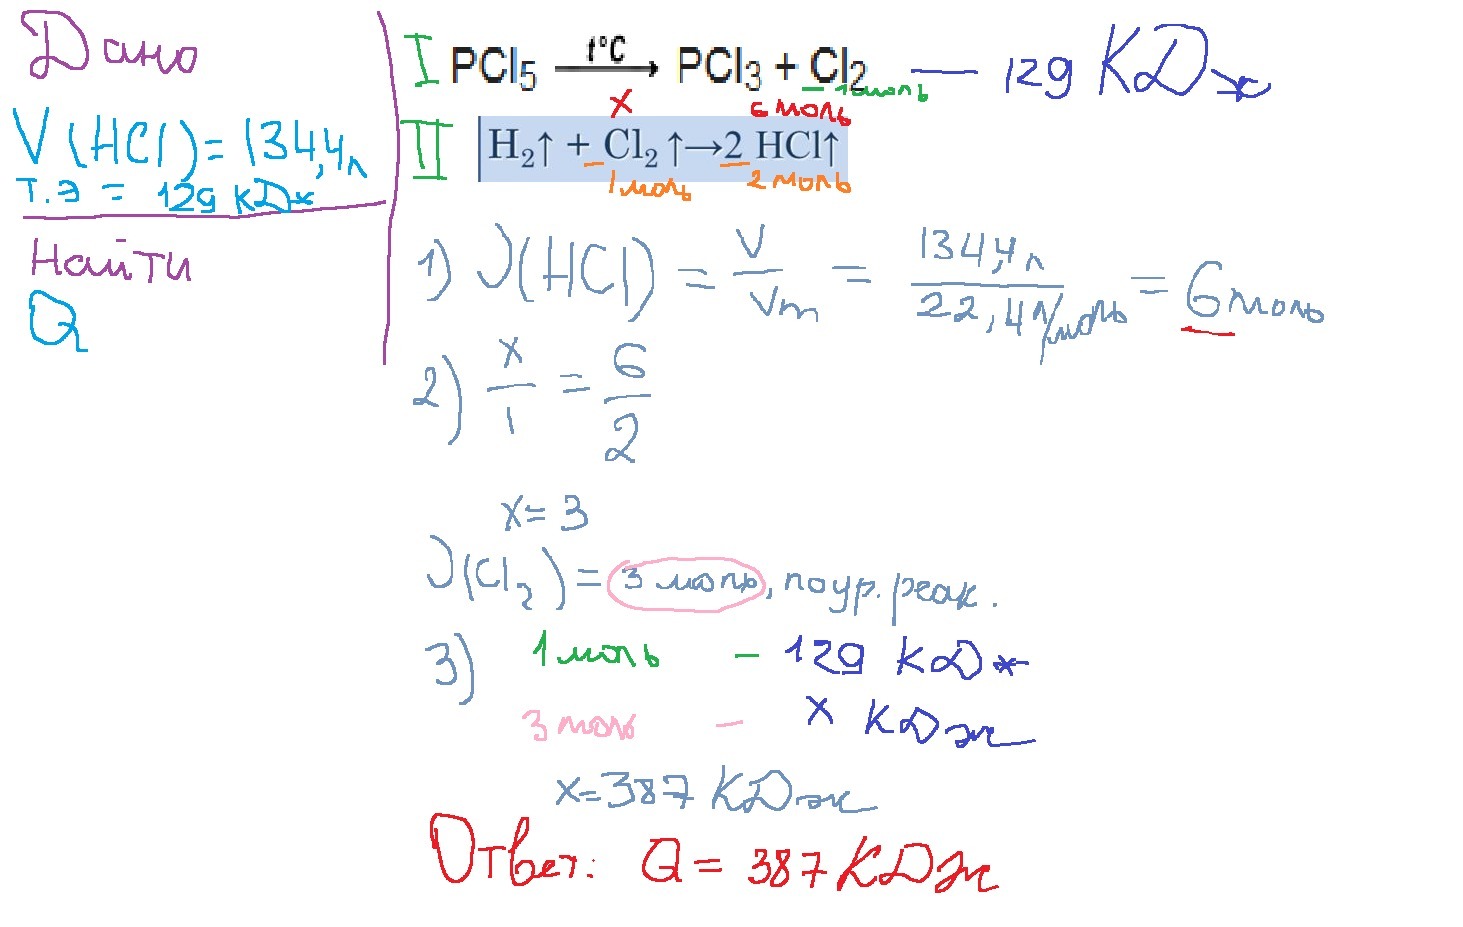 Дано
V (HCl) = 134,4л
т.э = 129 кДж
Найти
Q
I PCl₅ t°C → PCl₃ + Cl₂ — 129 КДж
– 1моль
x 6 моль
II H₂↑ + Cl₂ ↑→2 HCl↑
1 моль 2 моль
1) ν(HCl) = V/Vm = 134,4л/22,4л/моль = 6моль
2) x/1 = 6/2
x = 3
ν(Cl₂) = 3 моль, по ур. реак.
3) 1 моль – 129 кДж
3 моль – x кДж
x=387 КДж
Ответ: Q = 387 КДж